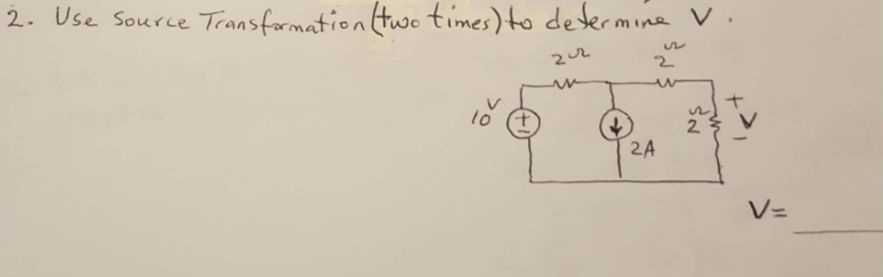 2. Use Source Transformation (two times) to determine V.
2Ω 2Ω
10V + − 2A 2Ω + V −
V=